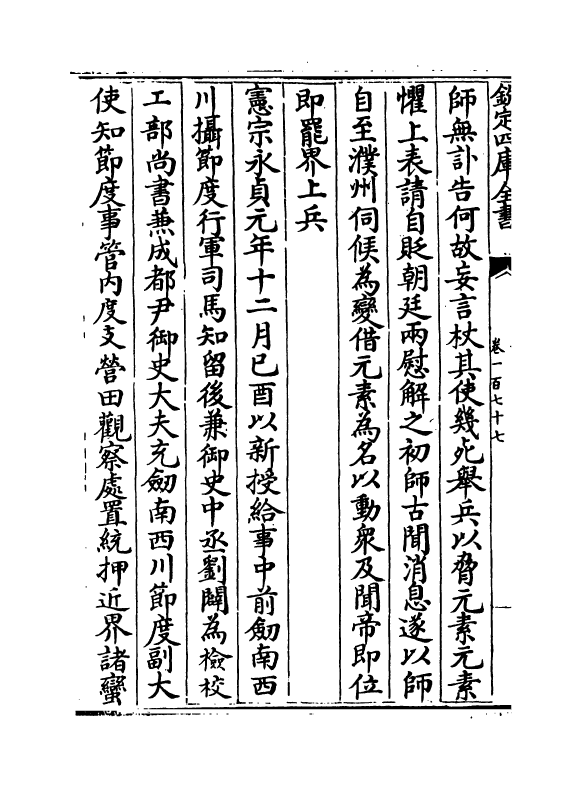 欽定四庫全書
卷一百七十七
師無訃告何故妄言杖其使幾死舉兵以脅元素元素
懼上表請自貶朝廷兩慰解之初師古聞消息遂以師
自至濮州伺候為變借元素為名以動衆及聞帝即位
即罷界上兵
憲宗永貞元年十二月已酉以新授給事中前劒南西
川攝節度行軍司馬知留後兼御史中丞劉闢為檢校
工部尚書兼成都尹御史大夫充劒南西川節度副大
使知節度事管内度支營田觀察處置統押近界諸蠻